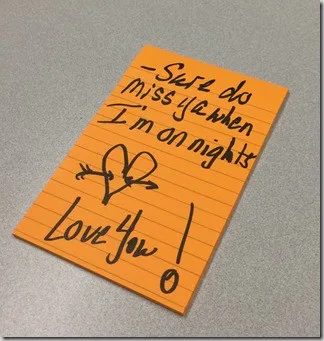 - Sure do
miss ya when
I'm on nights
Love You!